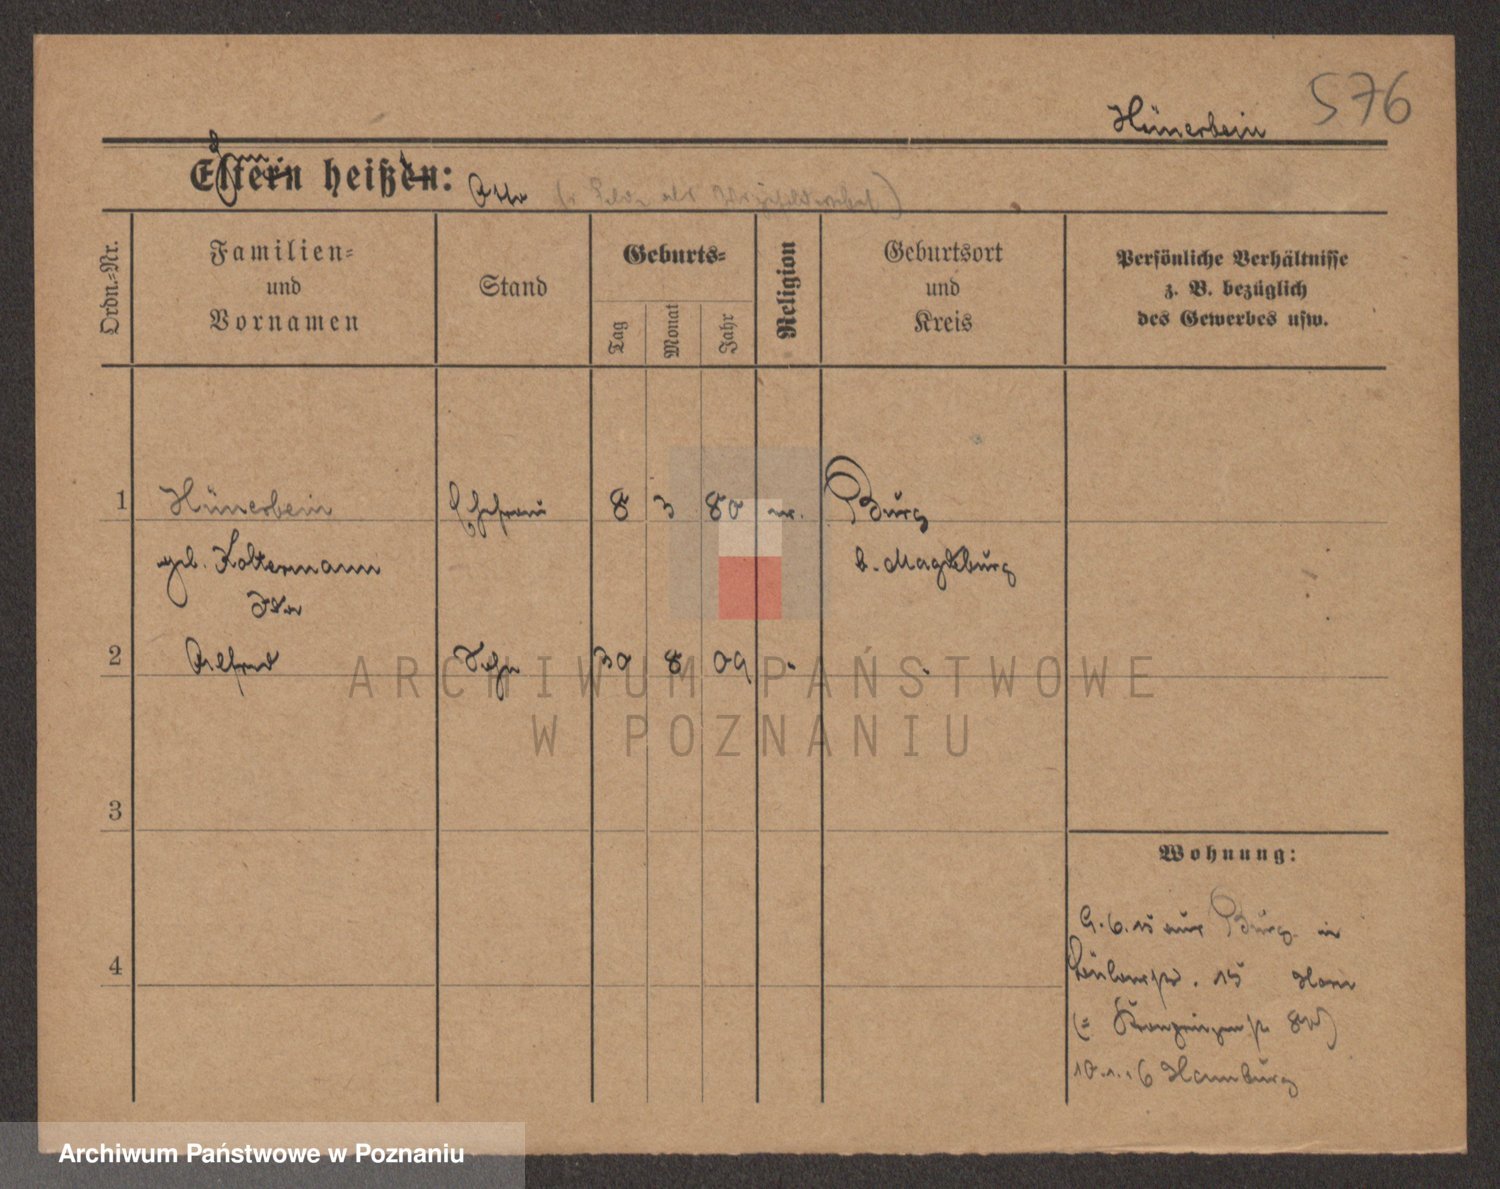 576
Hünerbein
Eltern heißen: Otto
Ordn.-Nr.
Familien-
und
Vornamen
Stand
Geburts-
Tag
Monat
Jahr
Religion
Geburtsort
und
Kreis
Persönliche Verhältnisse
z. B. bezüglich
des Gewerbes usw.
1 Hünerbein Ehefrau 8 3 80 ev. Burg
geb. Koltermann b. Magdeburg
Ida
2 Alfred Sohn 30 8 09 "
3
4
Wohnung:
9. 6. 15 aus Burg in
15
10. 1. 16 Hamburg
ARCHIWUM PAŃSTWOWE
W POZNANIU
Archiwum Państwowe w Poznaniu